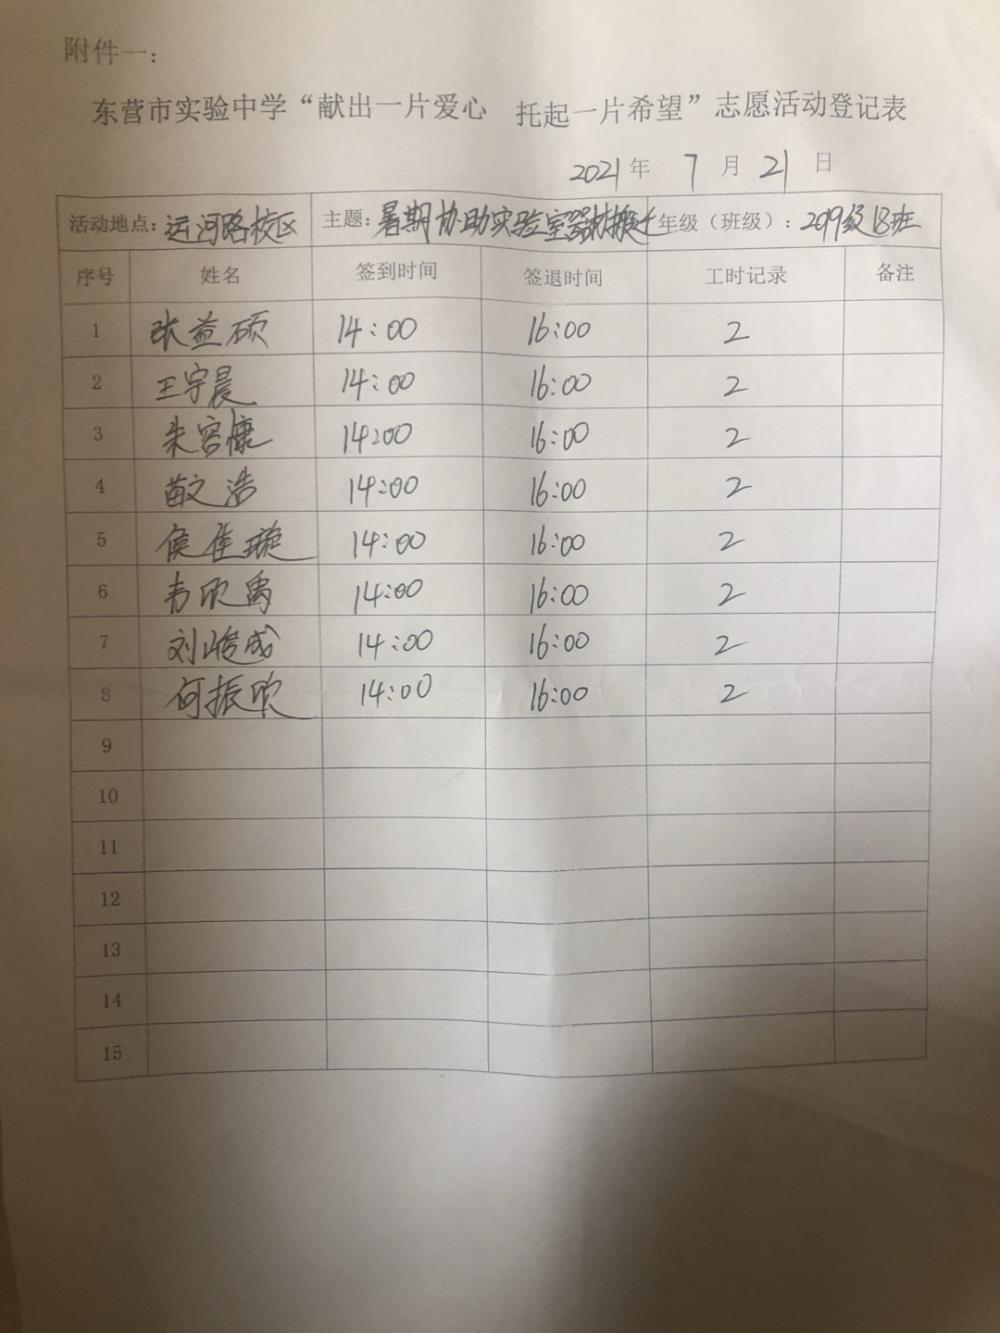 附件一：
东营市实验中学“献出一片爱心 托起一片希望”志愿活动登记表
2021年 7月 21日
活动地点：运河路校区 主题：暑期协助实验室器材搬迁 年级（班级）：2019级18班
序号 姓名 签到时间 签退时间 工时记录 备注
1 张益硕 14:00 16:00 2
2 王宇晨 14:00 16:00 2
3 朱容慷 14:00 16:00 2
4 苗文浩 14:00 16:00 2
5 侯佳璇 14:00 16:00 2
6 韦欣禹 14:00 16:00 2
7 刘峻成 14:00 16:00 2
8 何振欣 14:00 16:00 2
9
10
11
12
13
14
15